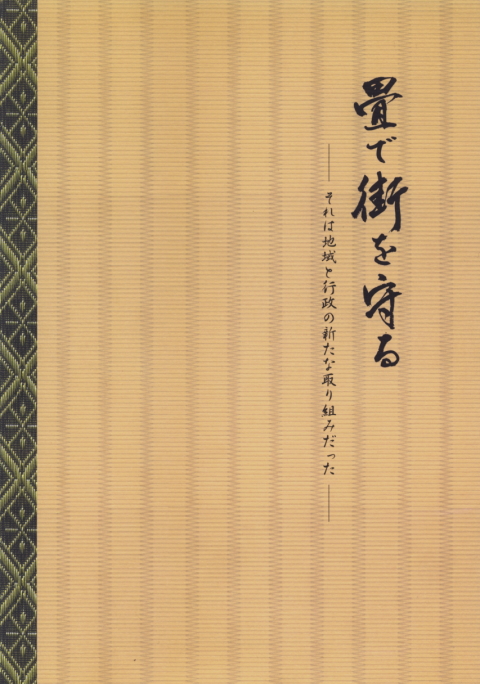 畳で街を守る
それは地域と行政の新たな取り組みだった